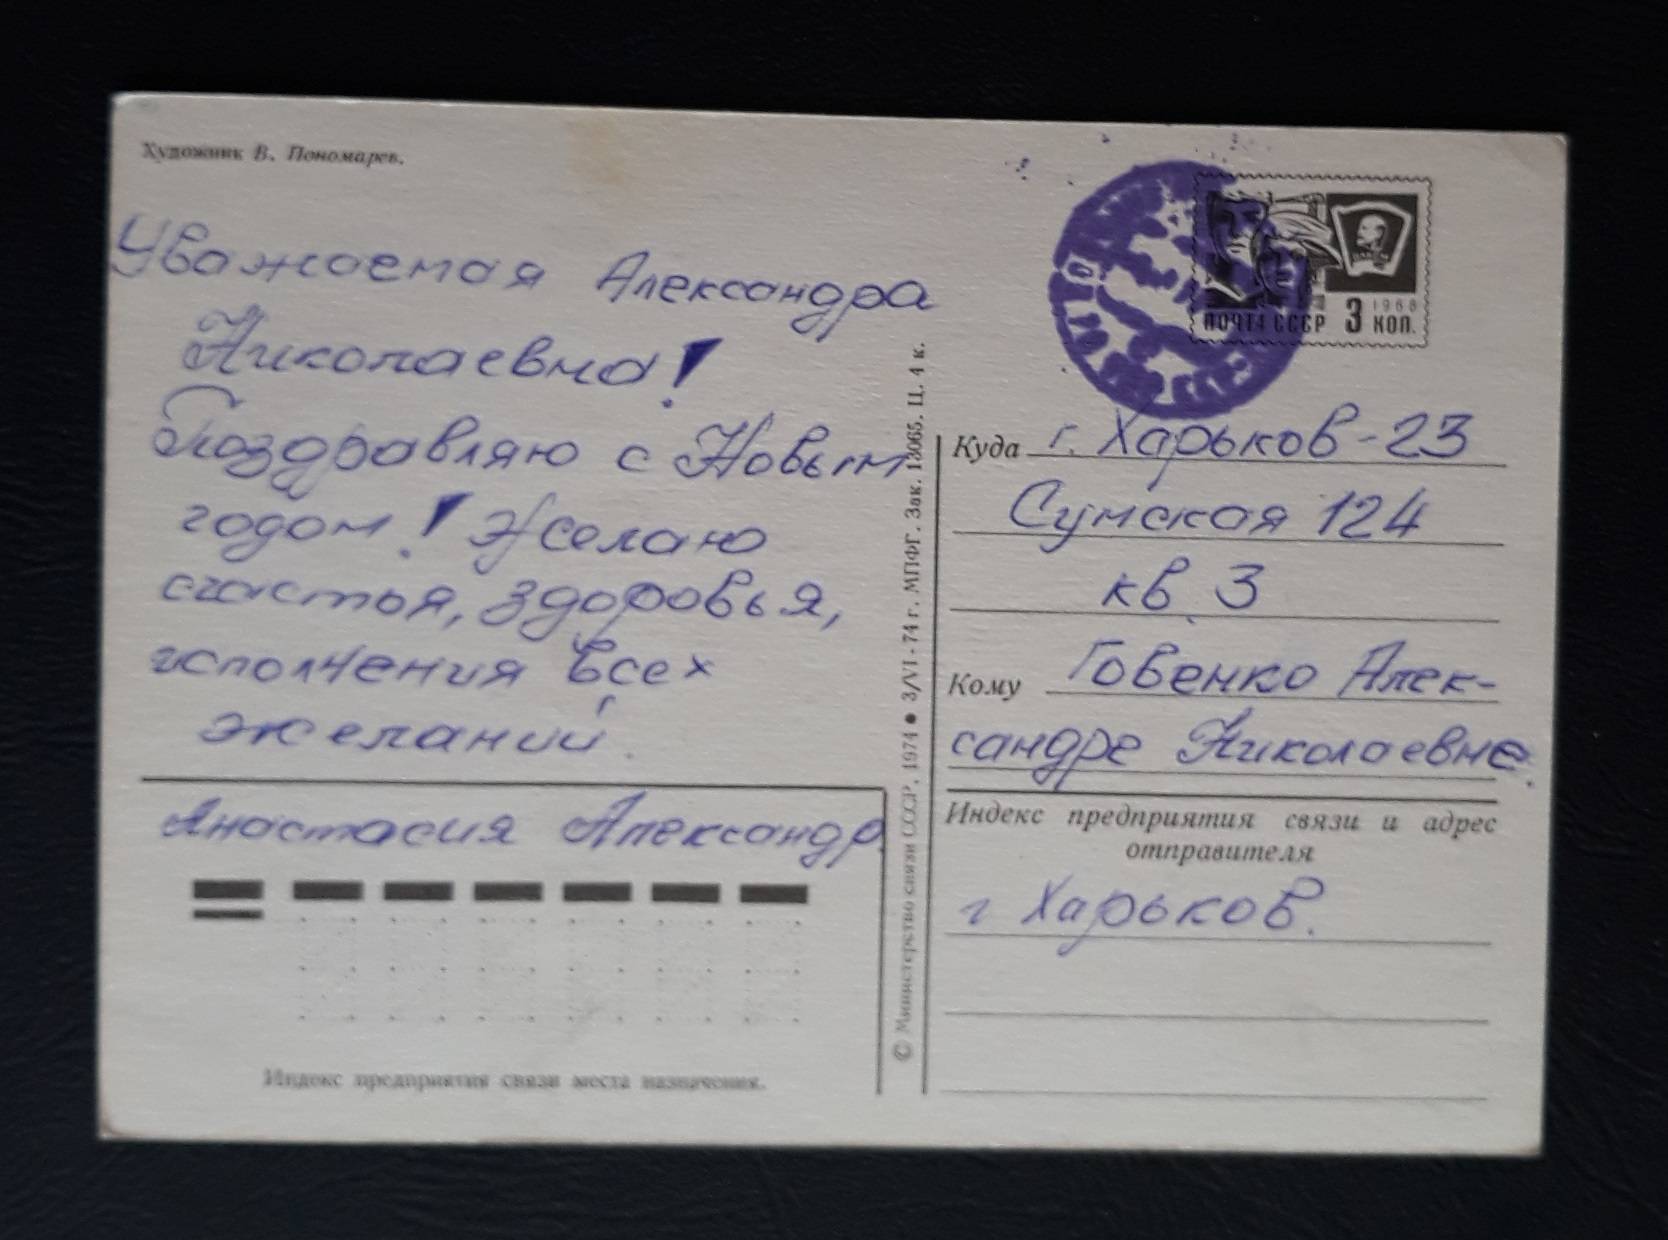 Художник В. Пономарев.
Уважаемая Александра
Николаевна!
Поздравляю с Новым
годом! Желаю
счастья, здоровья,
исполнения всех
желаний.
Анастасия Александр.
Индекс предприятия связи места назначения.
© Министерство связи СССР, 1974 ● 3/VI-74 г. МПФГ. Зак. 13065. Ц. 4 к.
1968
ПОЧТА СССР 3 КОП.
Куда г. Харьков-23
Сумская 124
кв. 3
Кому Говенко Алек-
сандре Николаевне.
Индекс предприятия связи и адрес
отправителя
г Харьков.